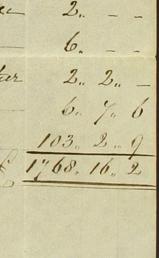 2.. – –
6.. – –
2.. 2.. –
6.. 7.. 6
103.. 2.. 9
1768.. 16.. 2